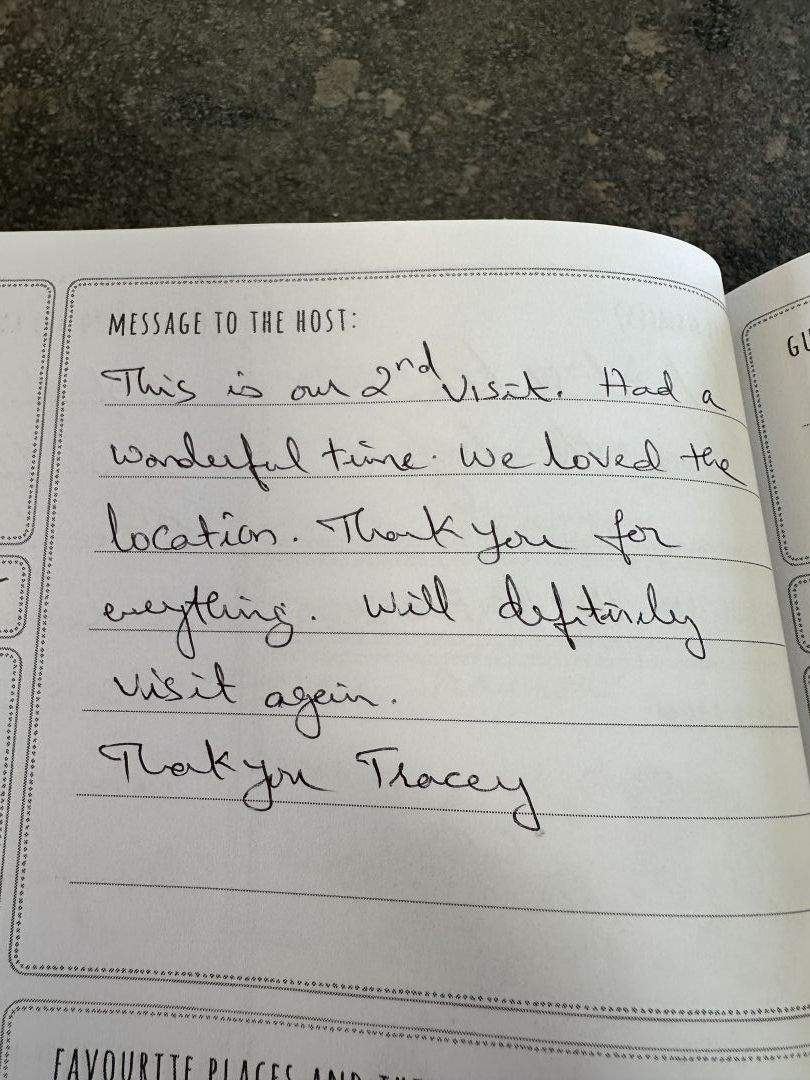 MESSAGE TO THE HOST:
This is our 2nd visit. Had a
wonderful time. We loved the
location. Thank you for
everything. Will defitinely
visit again.
Thak you Tracey
GU
FAVOURITE PLACES AND